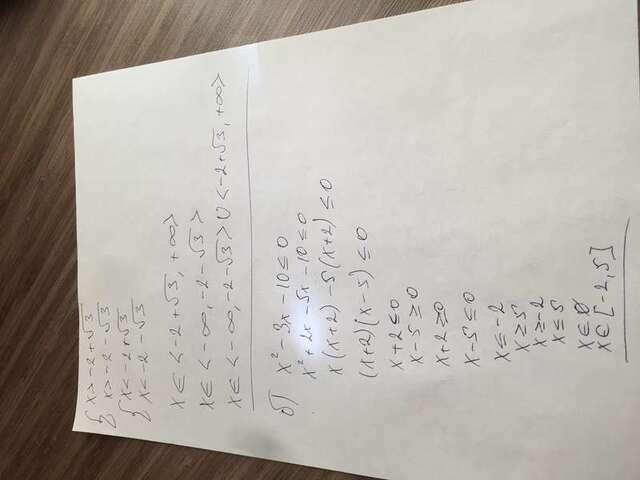 { x > -2 + √3
x > -2 - √3
{ x < -2 + √3
x < -2 - √3
x ∈ < -2 + √3, +∞ >
x ∈ < -∞, -2 - √3 >
x ∈ < -∞, -2 - √3 > ∪ < -2 + √3, +∞ >
б) x² - 3x - 10 ≤ 0
x² + 2x - 5x - 10 ≤ 0
x(x+2) - 5(x+2) ≤ 0
(x+2)(x-5) ≤ 0
x + 2 ≤ 0
x - 5 ≥ 0
x + 2 ≥ 0
x - 5 ≤ 0
x ≤ -2
x ≥ 5
x ≥ -2
x ≤ 5
x ∈ ∅
x ∈ [-2, 5]